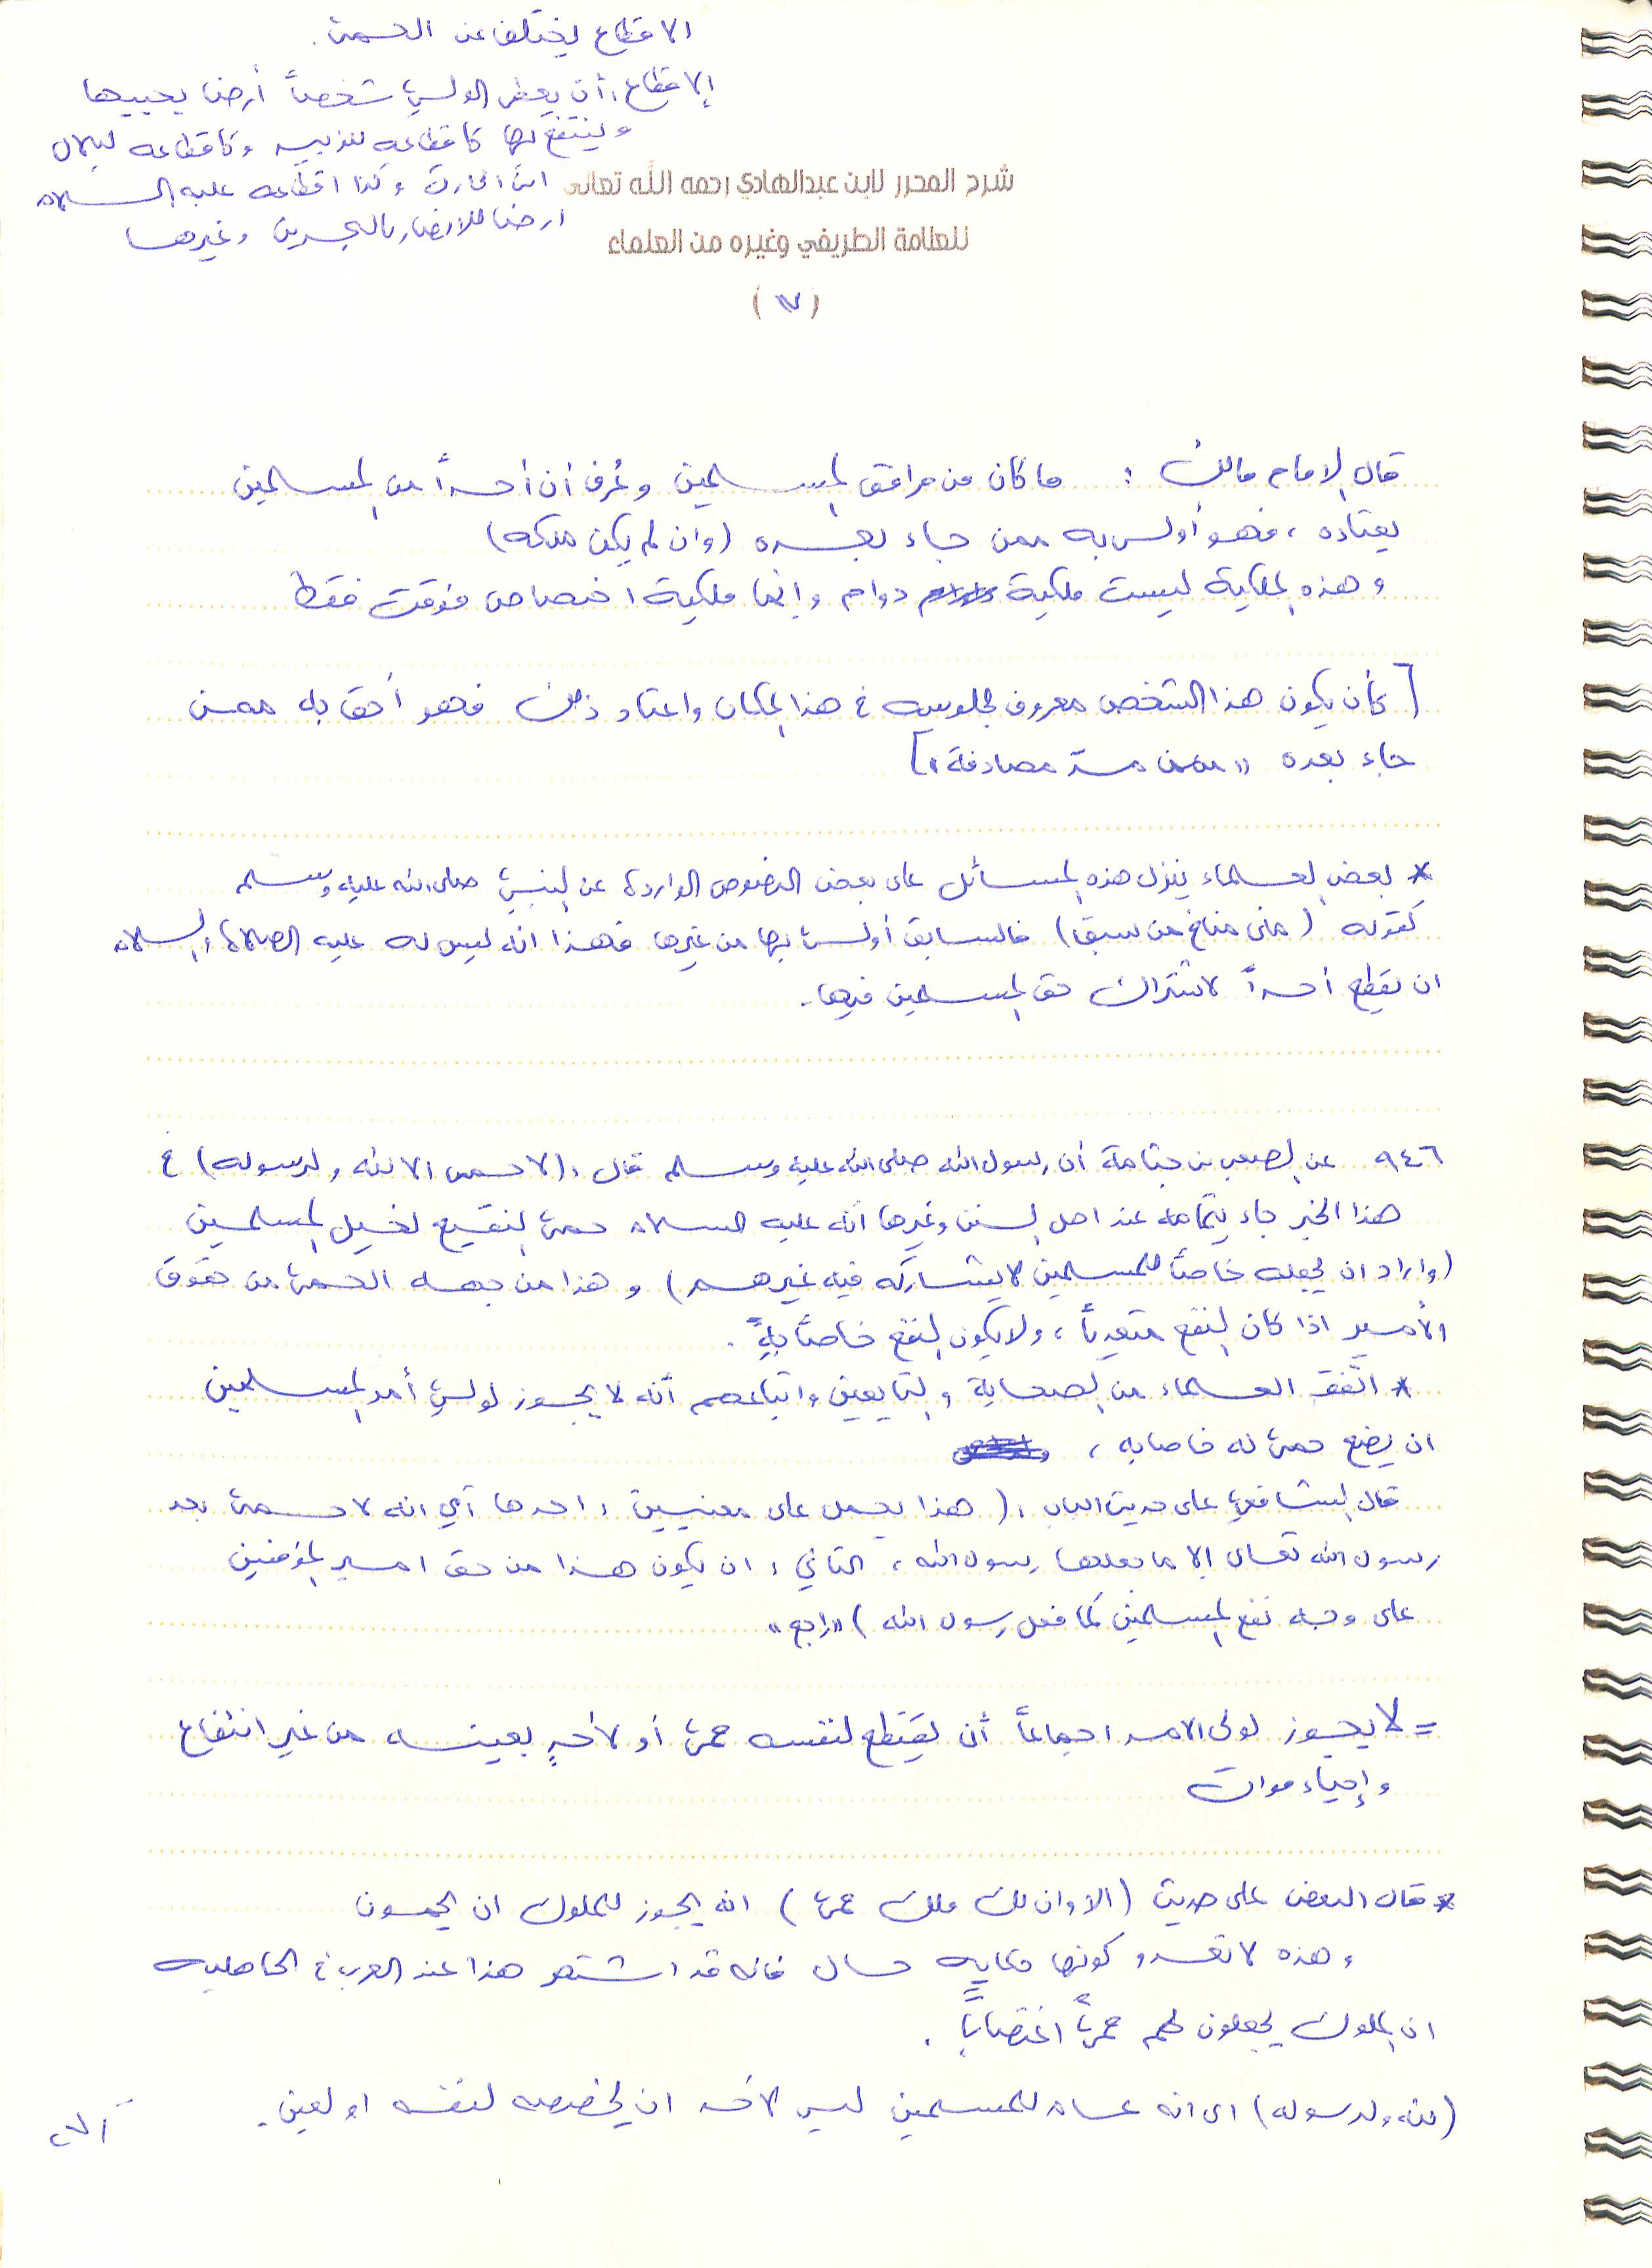 الاقطاع يختلف عن الحمى.
الاقطاع: أن يعطي الولي شخصاً أرضا يحييها
وينتفع بها كاقطاعه للزبير وكاقطاعه لبلال
ابن الحارث وكذا اقطاعه عليه السلام
ارضا للانصار بالبحرين وغيرها
شرح المحرر لابن عبدالهادي رحمه الله تعالى
للعلامة الطريفي وغيره من العلماء
قال الامام مالك : ما كان من مرافق المسلمين وعُرف أن أحداً من المسلمين
يعتاده ، فهو أولى به ممن جاء بعده (وان لم يكن ملكه)
وهذه الملكية ليست ملكية دوام وإنما ملكية اختصاص مؤقت فقط
[كأن يكون هذا الشخص معروف بجلوسه في هذا المكان واعتاد ذلك فهو أحق به ممن
جاء بعده مصادفة"]
* بعض العلماء ينزل هذه المسائل على بعض النصوص الواردة عن النبي صلى الله عليه وسلم
كقوله (منى مناخ من سبق) فالسابق أولى بها من غيرها فهذا انه ليس له عليه الصلاة والسلام
ان يقطع أحداً لاشتراك حق المسلمين فيها.
٩٤٦ عن الصعب بن جثامة أن رسول الله صلى الله عليه وسلم قال : (لا حمى الا لله ولرسوله) في
هذا الخبر جاء بتمامه عند اهل السنن وغيرها أنه عليه السلام حمى النقيع لخيل المسلمين
(وأراد ان يجعله خاصاً للمسلمين لا يشاركه فيه غيرهم) وهذا من جهة الحمى من حقوق
الأمير اذا كان النفع متعدياً ، ولا يكون النفع خاصاً به.
* اتفق العلماء من الصحابة والتابعين واتباعهم أنه لا يجوز لولي أمر المسلمين
ان يضع حمى له خاصا به ،
قال الشافعي على حديث الباب : (هذا يحمل على معنيين : احدها أي انه لا حمى بعد
رسول الله تعالى إلا ما جعلها رسول الله ، الثاني : ان يكون هذا من حق امير المؤمنين
على وجه نفع المسلمين كما فعل رسول الله) "راجع"
= لا يجوز لولي الامر اجماعاً أن يقتطع لنفسه حمى أو لأحدٍ بعينه من غير انتفاع
وإحياء موات
* قال البعض على حديث (الا وان لكل ملك حمى) انه يجوز للملوك ان يحمون
وهذه لا تعدو كونها حكاية حال فانه قد اشتهر هذا عند العرب في الجاهلية
ان الملوك يجعلون لهم حمىً اغتصاباً .
(لله ولرسوله) اى انه عام للمسلمين ليس لاحد ان يخصصه لنفسه او لعين.